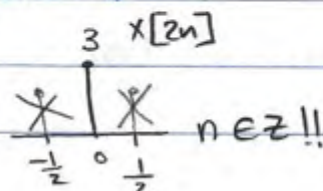 3 x[2n]
n ∈ Z !!
-1/2 0 1/2